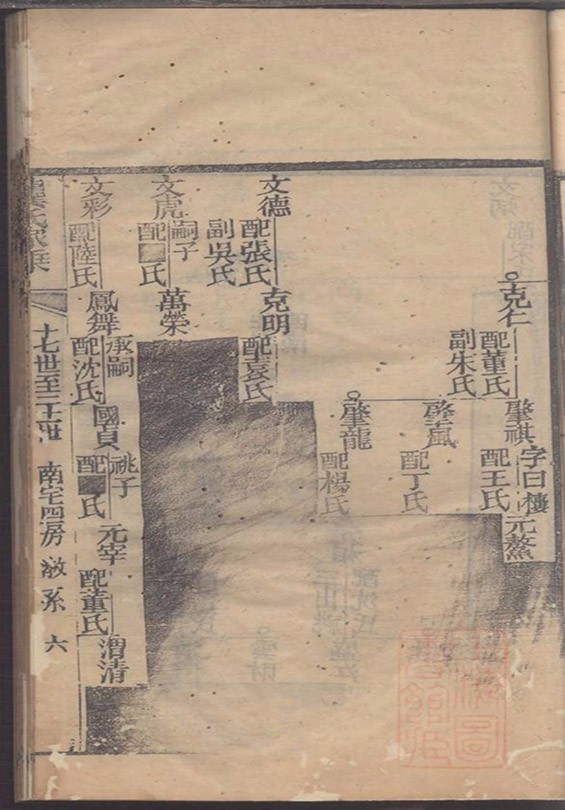 克仁
配董氏
副朱氏
肇祺
字曰樓
配王氏
元鰲
肇嵐
配丁氏
肇龍
配楊氏
文德
配張氏
副吳氏
克明
配袁氏
文虎
嗣子
配 氏
萬榮
文彩
配陸氏
鳳舞
承嗣
配沈氏
國貞
祧子
配 氏
元宰
配董氏
渭清
氏家乘
十七世至二十一世
南宅四房
系
六